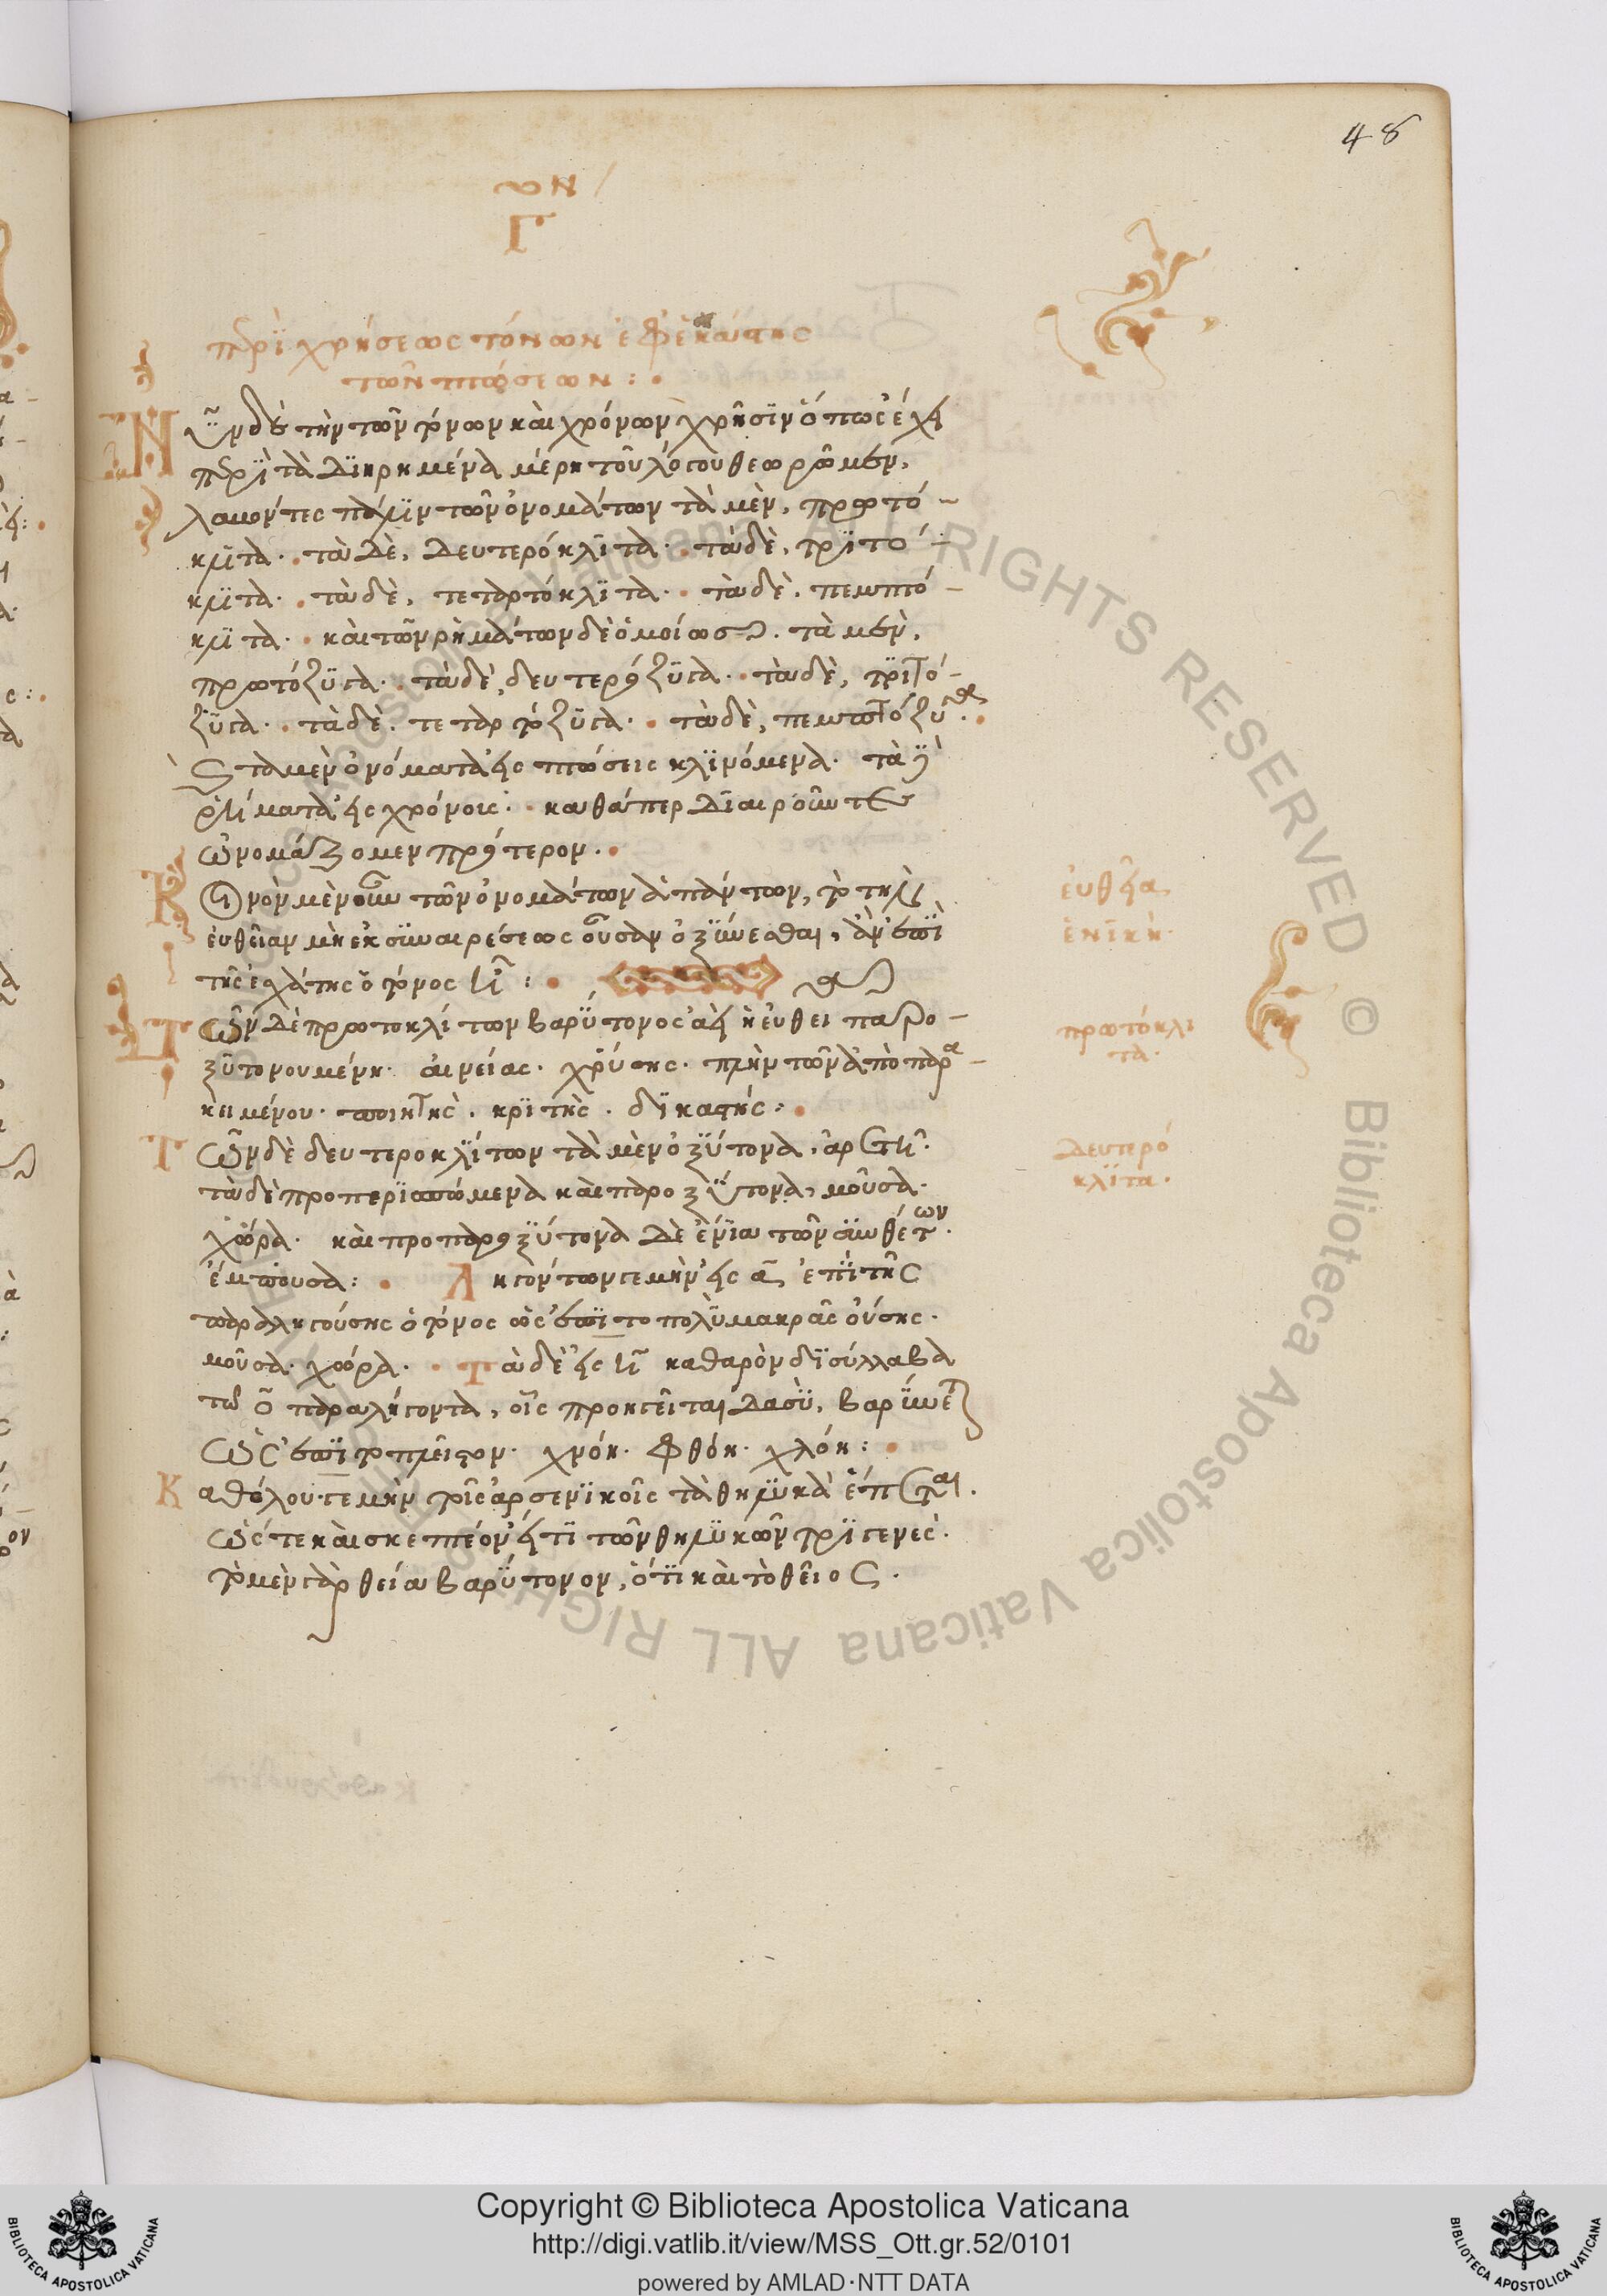 48
ον
Γ
περὶ χρήσεως τόνων ἐφ' ἑκάστης
τῶν πτώσεων : ·
Νῦν δὲ τὴν τῶν τόνων καὶ χρόνων χρῆσιν ὅπως ἔχει
περὶ τὰ διῃρημένα μέρη τοῦ λόγου θεωρῶμεν,
λαβόντες πάλιν τῶν ὀνομάτων τὰ μὲν, πρωτό-
κλιτα · τὰ δὲ, δευτερόκλιτα · τὰ δὲ, τριτό-
κλιτα · τὰ δὲ, τεταρτόκλιτα · τὰ δὲ, πεμπτό-
κλιτα · καὶ τῶν ῥημάτων δὲ ὁμοίως. τὰ μὲν,
πρωτόζυγα · τὰ δὲ, δευτερόζυγα · τὰ δὲ, τριτό-
ζυγα · τὰ δὲ, τεταρτόζυγα · τὰ δὲ, πεμπτόζυγα ·
καὶ τὰ μὲν ὀνόματα εἰς πτώσεις κλινόμενα · τὰ δὲ
ῥήματα εἰς χρόνοις · καθάπερ διαιροῦντες
ὠνομάζομεν πρότερον ·
Κοινὸν μὲν οὖν τῶν ὀνομάτων ἁπάντων, τὸ τὴν
εὐθεῖαν μὴ ἐκ συναιρέσεως οὖσαν ὀξύνεσθαι, ἂν ἐπὶ
τῆς ἐσχάτης ὁ τόνος ᾖ :
εὐθεῖα
ἑνικὴ
Τῶν δὲ πρωτοκλίτων βαρύτονος ἀεὶ ἡ εὐθεῖα παρο-
ξυτονουμένη · αἰνείας · χρύσης · πλὴν τῶν ἀπὸ παρα-
κειμένου · ποιητὴς · κριτὴς · δικαστής :
πρωτόκλι
τα ·
Τῶν δὲ δευτεροκλίτων τὰ μὲν ὀξύτονα · ἀρετή ·
τὰ δὲ προπερισπώμενα καὶ παροξύτονα, μοῦσα ·
χώρα · καὶ προπαροξύτονα δὲ ἔνια τῶν συνθέτων ·
ἔμπουσα : Ληγόντων γε μὴν εἰς α, ἐπὶ τῆς
παραληγούσης ὁ τόνος ὡς ἐπὶ τὸ πολὺ μακρᾶς οὔσης ·
μοῦσα · χώρα · Τὰ δὲ εἰς η καθαρὸν δισύλλαβα
τῷ ο παραλήγοντα, οἷς προηγεῖται δασὺ, βαρύνεται
ὡς ἐπὶ τὸ πλεῖστον · χνόη · φθόη · χλόη :
Καθόλου γε μὴν τοῖς ἀρσενικοῖς τὰ θηλυκὰ ἕπεται ·
ὥστε καὶ σκεπτέον εἴ τι τῶν θηλυκῶν τριγενὲς ·
τὸ μὲν γὰρ θεία βαρύτονον, ὅτι καὶ τὸ θεῖος ·
δευτερό
κλιτα ·
Copyright © Biblioteca Apostolica Vaticana
http://digi.vatlib.it/view/MSS_Ott.gr.52/0101
powered by AMLAD·NTT DATA